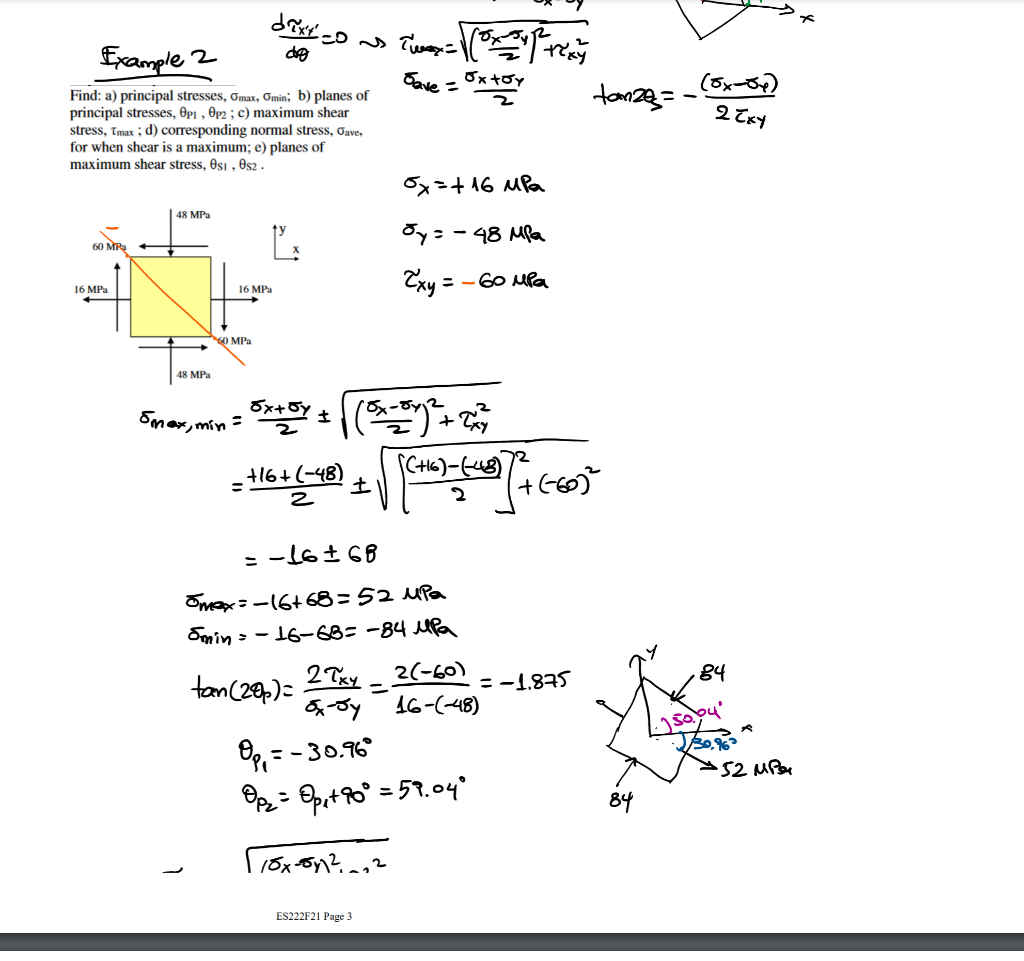 dτx'y'/dθ = 0 ⇝ τmax = √((σx-σy/2)² + τxy²)
x
Example 2
σave = σx+σy/2
tan2θs = - (σx-σy)/2τxy
Find: a) principal stresses, σmax, σmin; b) planes of
principal stresses, θP1 , θP2 ; c) maximum shear
stress, τmax ; d) corresponding normal stress, σave,
for when shear is a maximum; e) planes of
maximum shear stress, θS1 , θS2 .
σx = +16 MPa
σy = -48 MPa
τxy = -60 MPa
48 MPa
-
60 MPa
y
x
16 MPa
16 MPa
60 MPa
48 MPa
σmax,min = σx+σy/2 ± √((σx-σy/2)² + τxy²)
= +16+(-48)/2 ± √([(+16)-(-48)/2]² + (-60)²)
= -16 ± 68
σmax = -16+68 = 52 MPa
σmin = -16-68 = -84 MPa
tan(2θp) = 2τxy/σx-σy = 2(-60)/16-(-48) = -1.875
θp1 = -30.96°
θp2 = θp1+90° = 59.04°
y
84
50.04°
x
30.96°
52 MPa
84
√(σx-σy)²
ES222F21 Page 3